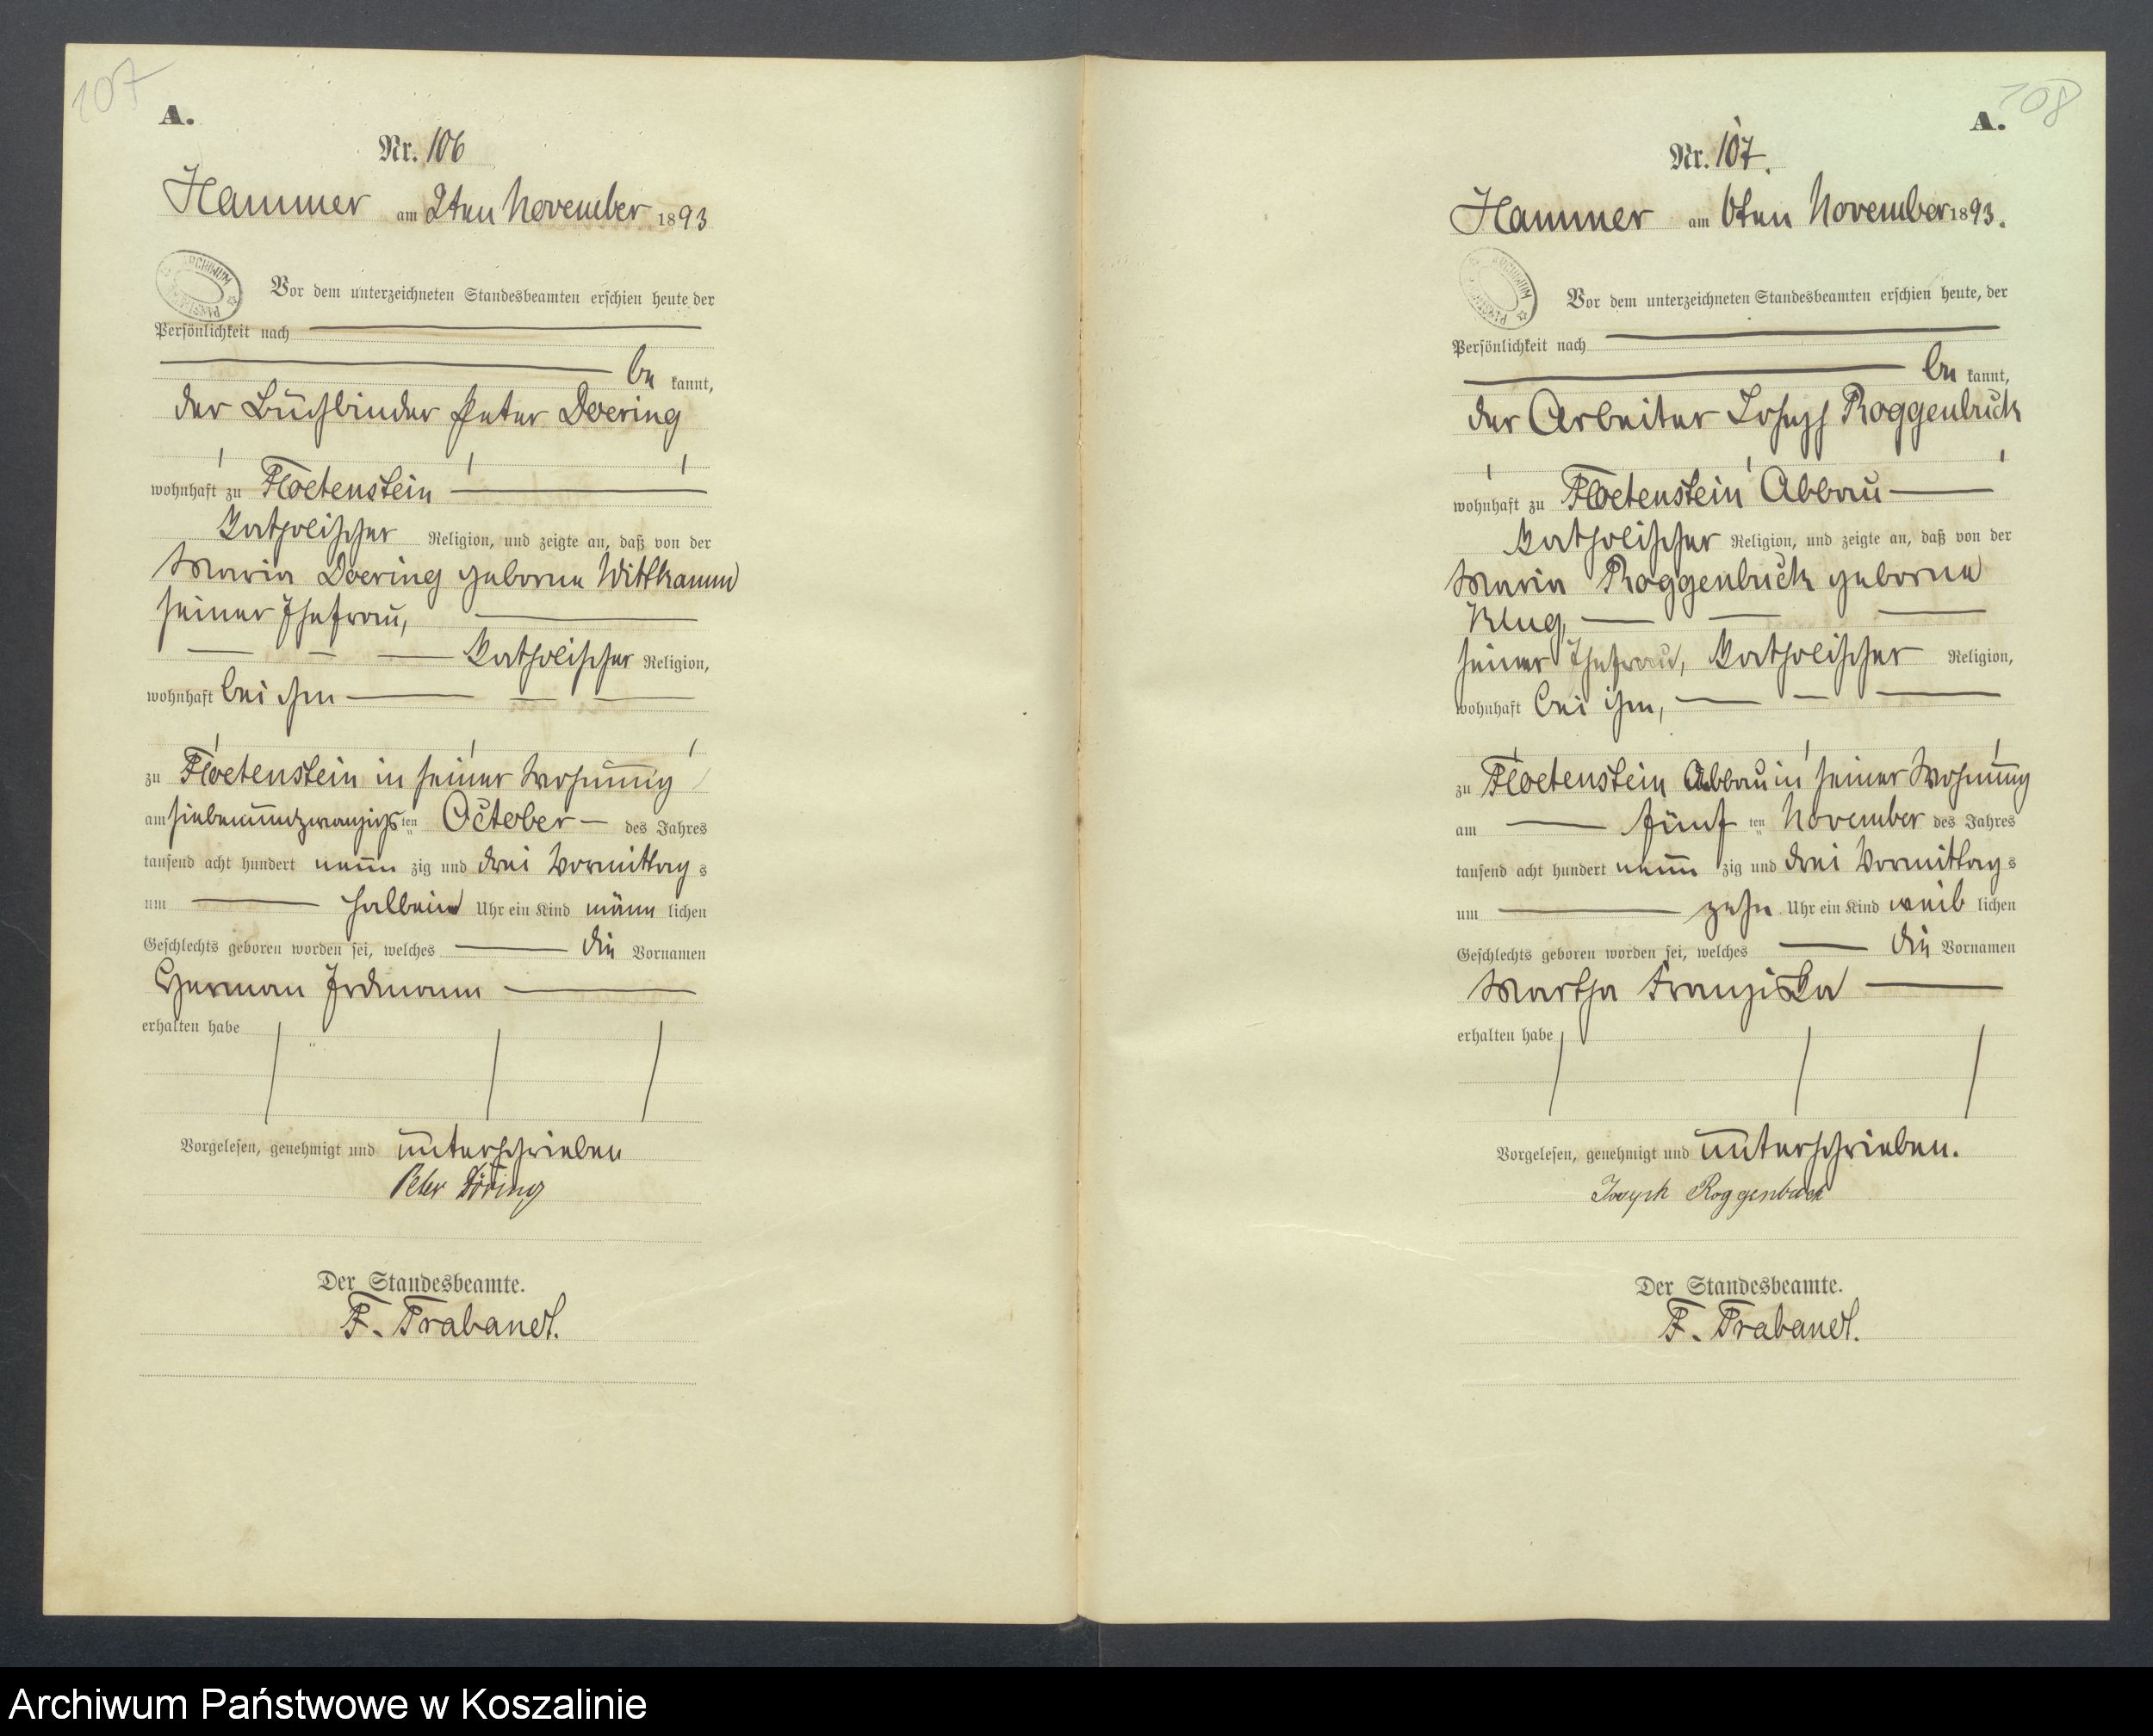 107
A.
Nr. 106
Hammer am 2ten November 1893
ARCHIWUM
Vor dem unterzeichneten Standesbeamten erschien heute, der
Persönlichkeit nach
be kannt,
der Buchbinder Peter Doering
wohnhaft zu Floetenstein
katholischer Religion, und zeigte an, daß von der
Maria Doering geborne Wittkamm
seiner Ehefrau,
katholischer Religion,
wohnhaft bei ihm
zu Floetenstein in seiner Wohnung
am siebenundzwanzigsten October des Jahres
tausend acht hundert neun zig und drei Vormittags
um halbein Uhr ein Kind männ lichen
Geschlechts geboren worden sei, welches die Vornamen
Herman Erdmann
erhalten habe
Vorgelesen, genehmigt und unterschrieben
Peter Döring
Der Standesbeamte.
F. Trabandt.
108
A.
Nr. 107.
Hammer am 6ten November 1893.
ARCHIWUM
Vor dem unterzeichneten Standesbeamten erschien heute, der
Persönlichkeit nach
be kannt,
der Arbeiter Joseph Roggenbuck
wohnhaft zu Floetenstein Abbau
katholischer Religion, und zeigte an, daß von der
Maria Roggenbuck geborne
Klug,
seiner Ehefrau, katholischer Religion,
wohnhaft bei ihm,
zu Floetenstein Abbau in seiner Wohnung
am fünf ten November des Jahres
tausend acht hundert neun zig und drei Vormittags
um zehn Uhr ein Kind weib lichen
Geschlechts geboren worden sei, welches die Vornamen
Martha Franziska
erhalten habe
Vorgelesen, genehmigt und unterschrieben.
Joseph Roggenbuck
Der Standesbeamte.
F. Trabandt.
Archiwum Państwowe w Koszalinie